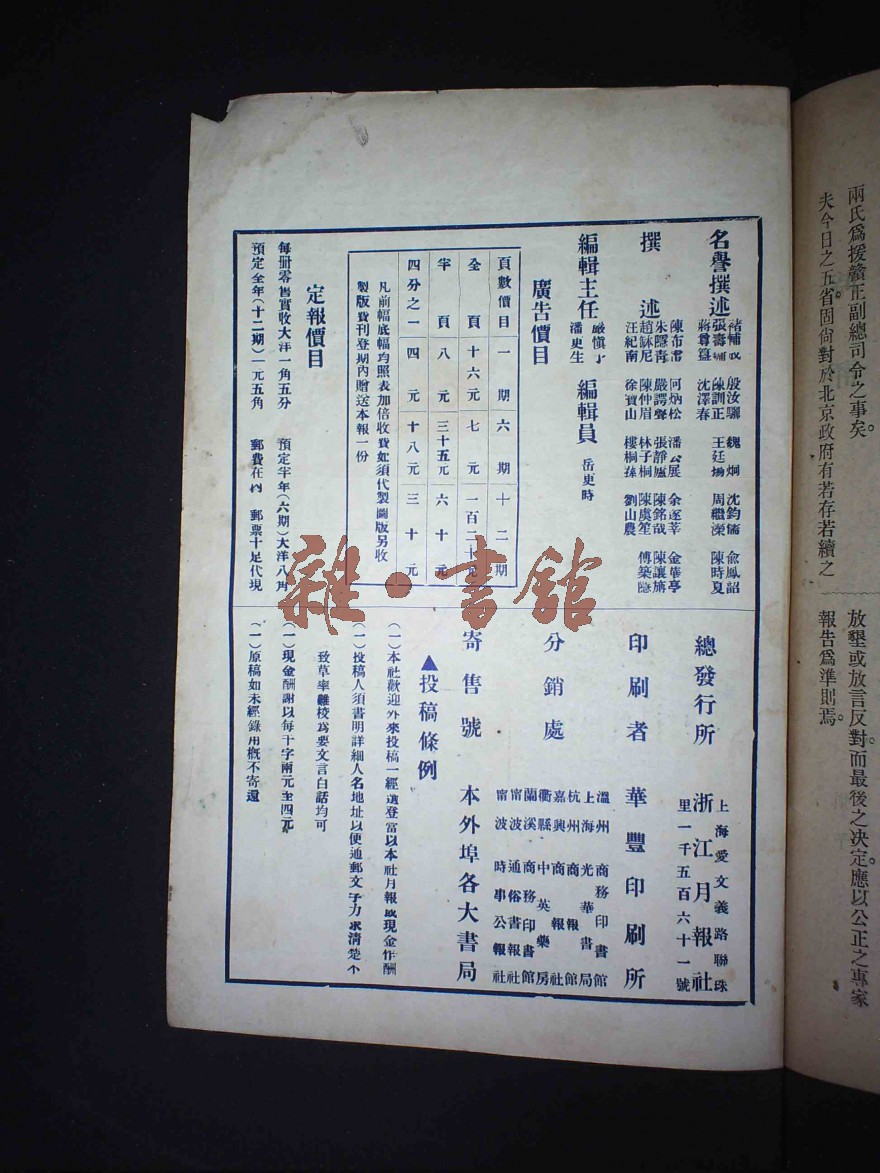 兩氏爲援贛正副總司令之事矣。
夫今日之五省固尙對於北京政府有若存若續之
放墾或放言反對。而最後之決定。應以公正之專家
報告爲準則焉。
名譽撰述
褚補成 殷汝驪 魏炯 沈鈞儒 俞鳳韶
張壽鏞 陳訓正 王廷揚 周繼濚 陳時夏
蔣尊簋 沈澤春
撰述
陳布雷 何炳松 潘公展 余遂莘 金華亭
朱隱青 嚴諤聲 張靜廬 陳銘哉 陳讓旃
趙缽尼 陳仲眉 林子桐 陳虞笙 傅築隱
汪紀南 徐寶山 樓桐孫 劉山農
編輯主任
嚴愼予
潘更生
編輯員 岳更時
廣告價目
頁數價目 一期 六期 十二期
全頁 十六元 七元 一百二十元
半頁 八元 三十五元 六十元
四分之一 四元 十八元 三十元
凡前幅底幅均照表加倍收費如須代製圖版另收
製版費刊登期內贈送本報一份
定報價目
每冊零售實收大洋一角五分 預定半年(六期)大洋八角
預定全年(十二期)一元五角 郵費在內 郵票十足代現
總發行所
上海愛文義路聯珠
浙江月報社
里一千五百六十一號
印刷者 華豐印刷所
分銷處
溫州商務印書館
上海光華書局
杭州商報館
嘉興商報社
衢縣中英藥房
蘭溪商務印書館
甯波通俗書報社
甯波時事公報社
寄售號 本外埠各大書局
▲投稿條例
(一)本社歡迎外來投稿一經選登當以本社月報或現金作酬
(一)投稿人須書明詳細人名地址以便通郵文字力求清楚不
致草率難校爲要文言白話均可
(一)現金酬謝以每千字兩元至四元
(一)原稿如未經錄用概不寄還
雜·書館